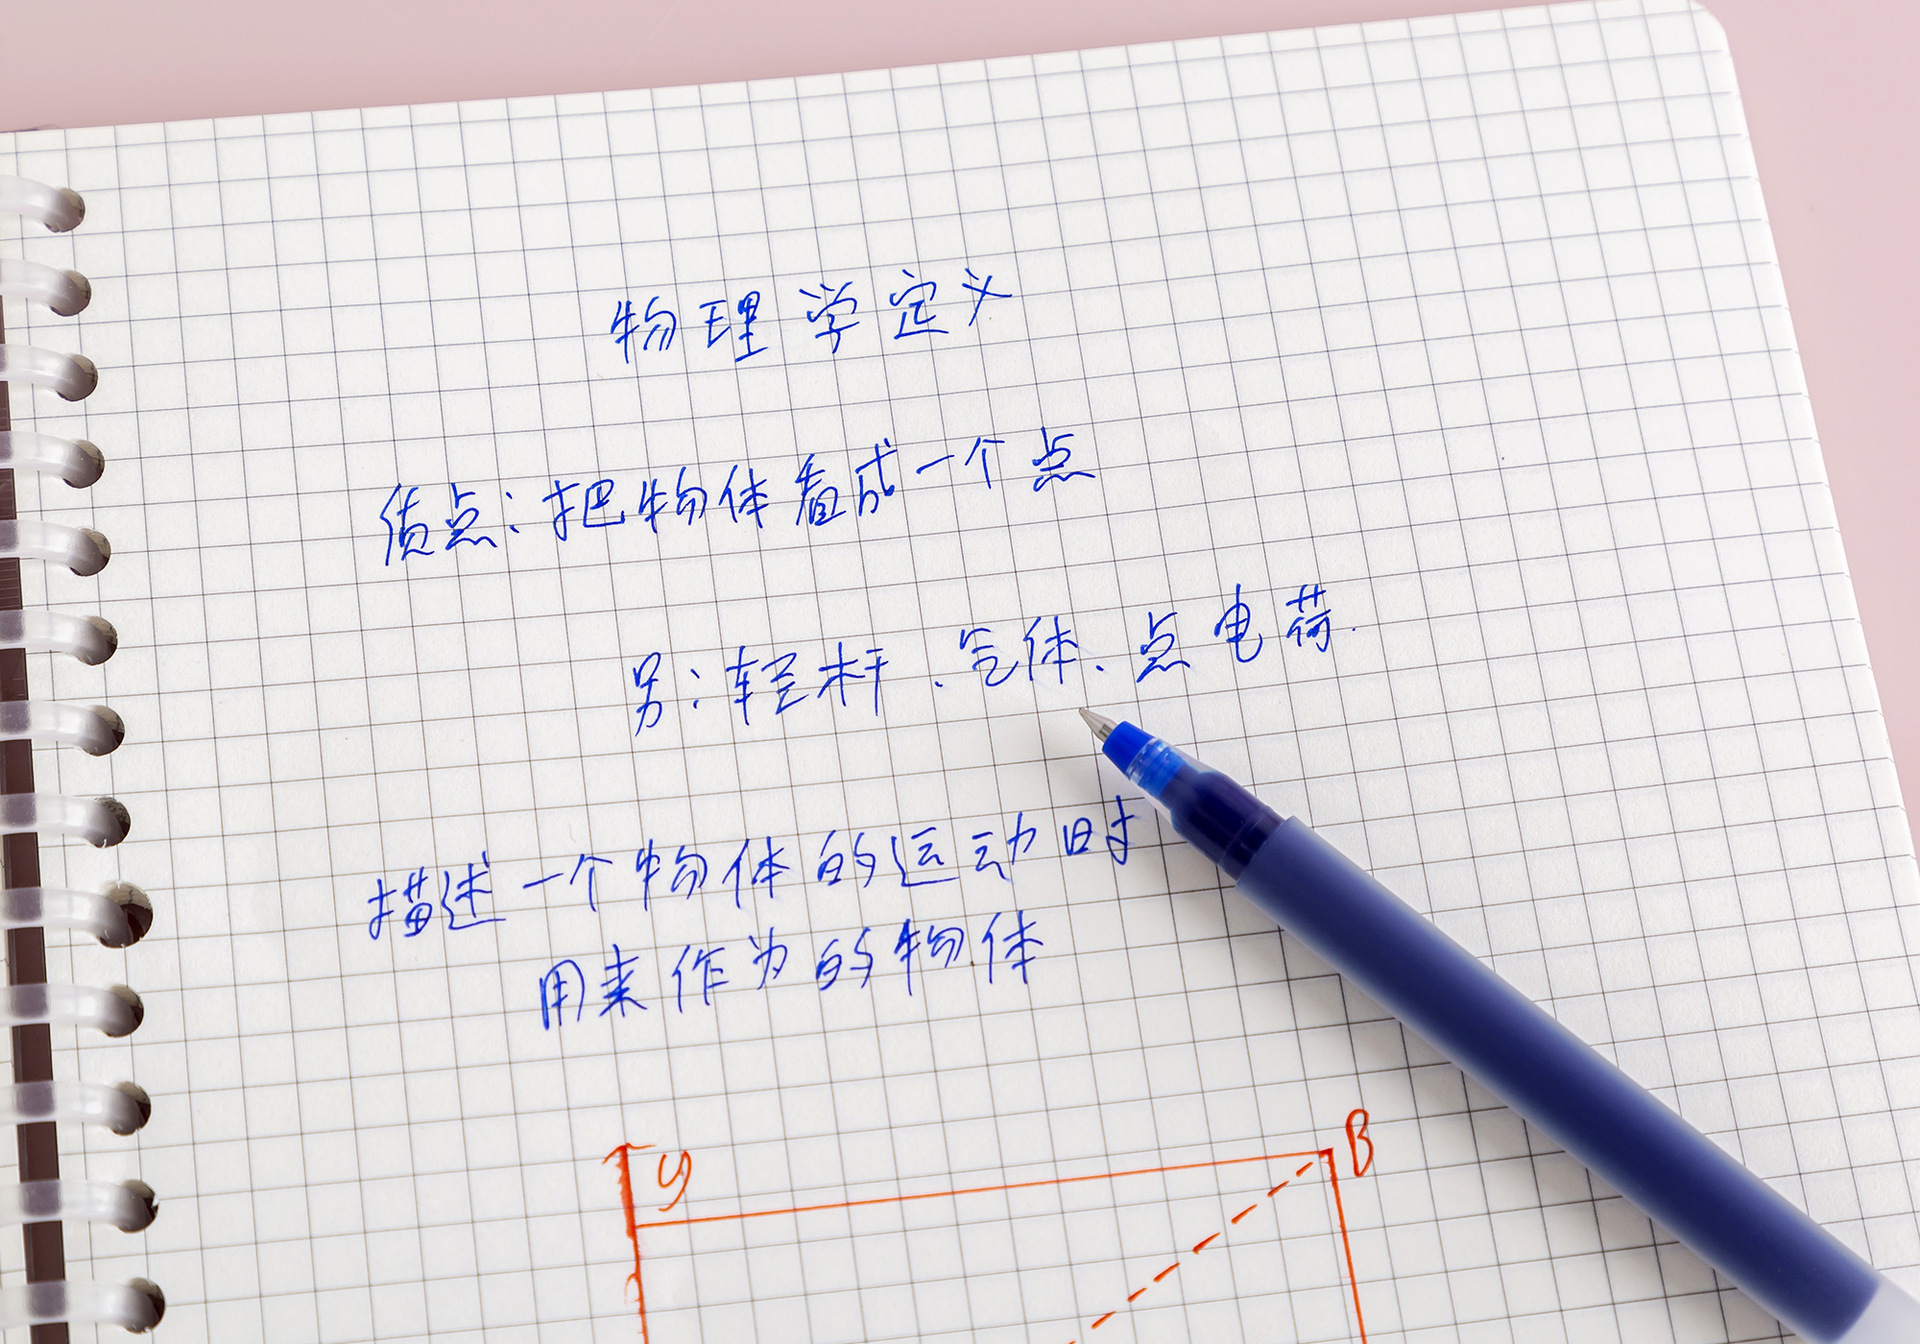 物理学定义
质点：把物体看成一个点
另：轻杆、气体、点电荷.
描述一个物体的运动时
用来作为的物体
y B